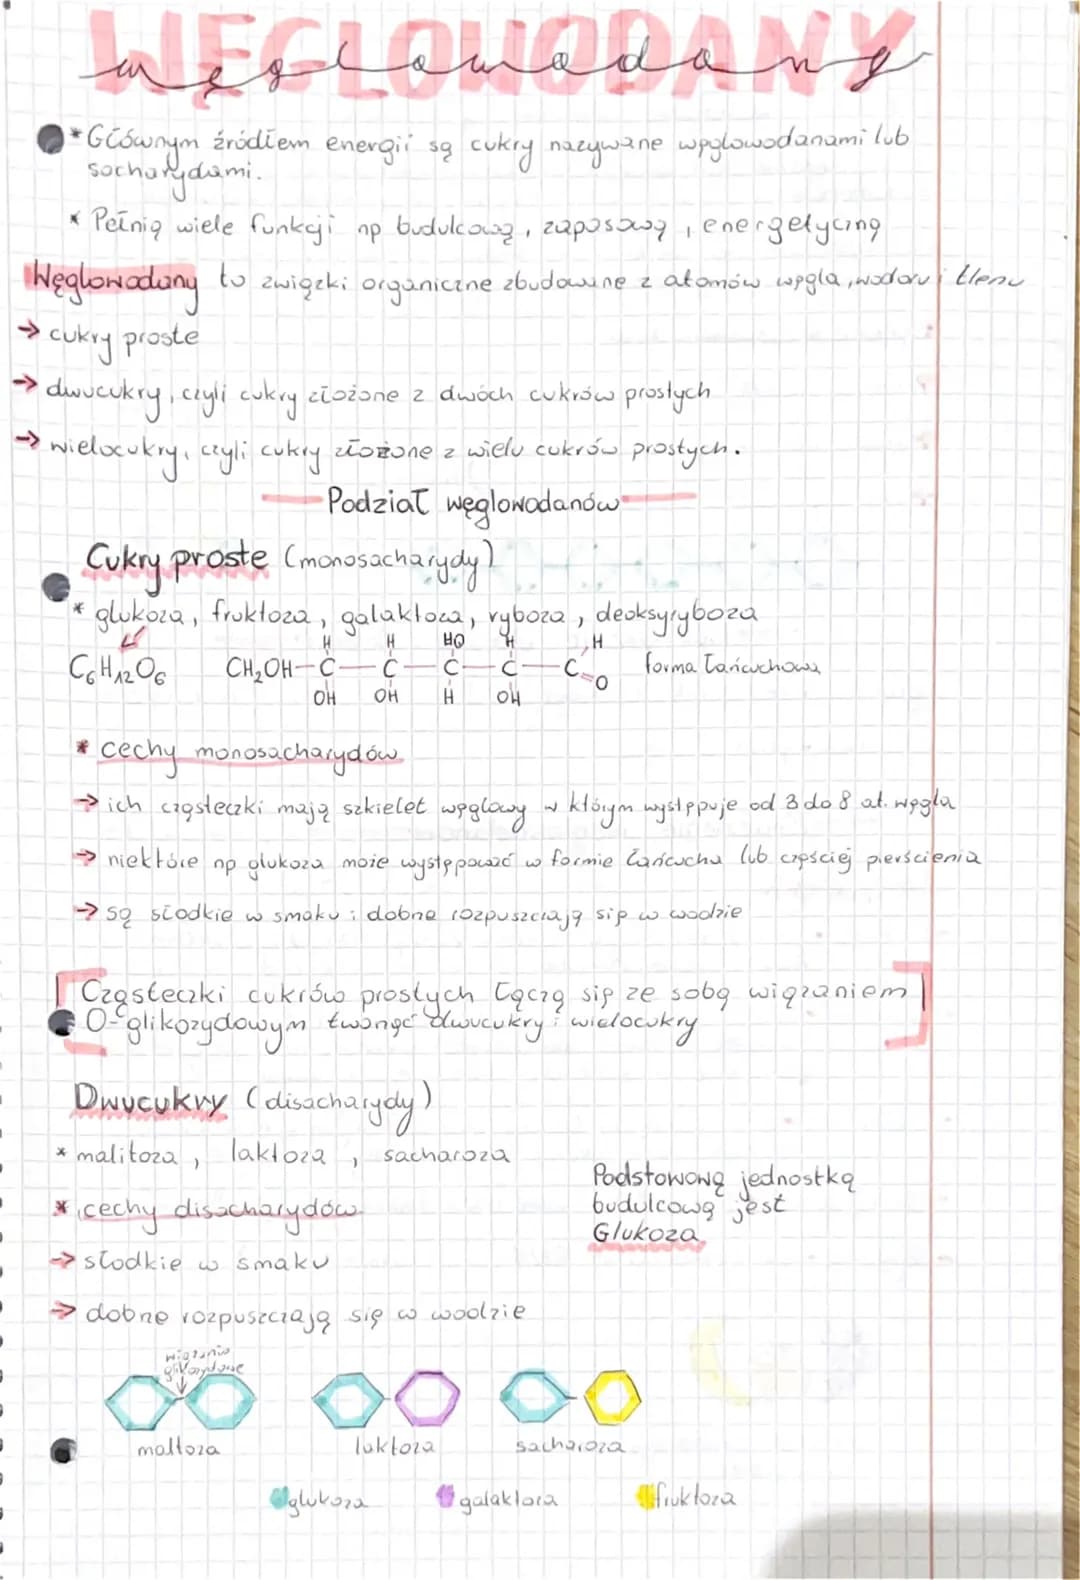 WĘGLOWODANY
węglowodany
* Głównym źródłem energii są cukry nazywane węglowodanami lub
sacharydami.
* Pełnią wiele funkcji np budulcową, zapasową, energetyczną
Węglowodany to związki organiczne zbudowane z atomów węgla, wodoru i tlenu
→ cukry proste
→ dwucukry, czyli cukry złożone z dwóch cukrów prostych
→ wielocukry, czyli cukry złożone z wielu cukrów prostych.
Podział węglowodanów
Cukry proste (monosacharydy)
* glukoza, fruktoza, galaktoza, ryboza, deoksyryboza
H H HO H H
C6H12O6 CH2OH-C-C-C-C-C=O forma łańcuchowa
OH OH H OH
* cechy monosacharydów
→ ich cząsteczki mają szkielet węglowy w którym występuje od 3 do 8 at. węgla
→ niektóre np glukoza może występować w formie łańcucha lub częściej pierścienia
→ są słodkie w smaku i dobrze rozpuszczają się w wodzie
Cząsteczki cukrów prostych łączą się ze sobą wiązaniem
O-glikozydowym tworząc dwucukry i wielocukry
Dwucukry (disacharydy)
* malitoza, laktoza, sacharoza
Podstawową jednostką
budulcową jest
Glukoza
* cechy disacharydów
→ słodkie w smaku
→ dobrze rozpuszczają się w wodzie
wiązanie
glikozydowe
maltoza laktoza sacharoza
glukoza galaktoza fruktoza